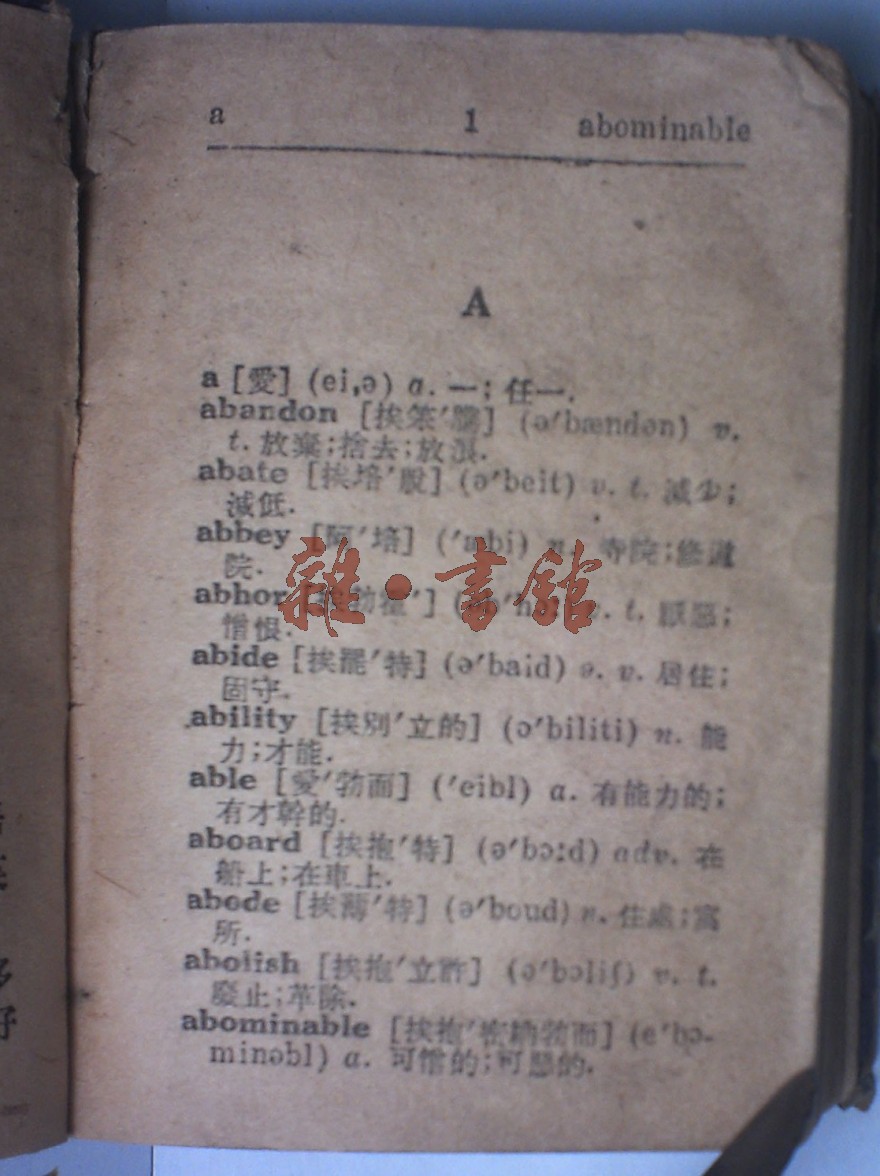 a 1 abominable
A
a [愛] (ei,ə) a. 一; 任一.
abandon [挨笨′騰] (ə′bændən) v.
t. 放棄;捨去;放浪.
abate [挨培′脫] (ə′beit) v. t. 減少;
減低.
abbey [阿′培] (′æbi) n. 寺院;修道
院.
abhor v. t. 厭惡;
憎恨.
雜·書館
abide [挨罷′特] (ə′baid) v. 居住;
固守.
ability [挨別′立的] (ə′biliti) n. 能
力;才能.
able [愛′勃而] (′eibl) a. 有能力的;
有才幹的.
aboard [挨抱′特] (ə′bɔ:d) adv. 在
船上;在車上.
abode [挨薄′特] (ə′boud) n. 住處;寓
所.
abolish [挨抱′立許] (ə′bɔliʃ) v. t.
廢止;革除.
abominable [挨抱′密納勃而] (e′bɔ-
minəbl) a. 可憎的;可惡的.